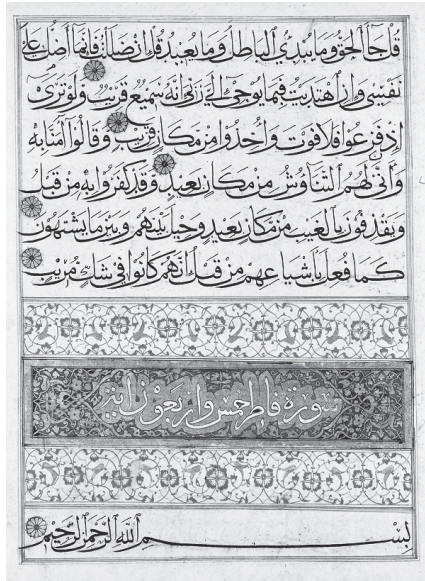 قُلْ جَآءَ الْحَقُّ وَمَا يُبْدِئُ الْبَاطِلُ وَمَا يُعِيدُ قُلْ إِنْ ضَلَلْتُ فَإِنَّمَا أَضِلُّ عَلَى
نَفْسِي وَإِنِ اهْتَدَيْتُ فَبِمَا يُوحِي إِلَيَّ رَبِّي إِنَّهُ سَمِيعٌ قَرِيبٌ وَلَوْ تَرَى
إِذْ فَزِعُوا فَلَا فَوْتَ وَأُخِذُوا مِنْ مَكَانٍ قَرِيبٍ وَقَالُوا آمَنَّا بِهِ
وَأَنَّى لَهُمُ التَّنَاوُشُ مِنْ مَكَانٍ بَعِيدٍ وَقَدْ كَفَرُوا بِهِ مِنْ قَبْلُ
وَيَقْذِفُونَ بِالْغَيْبِ مِنْ مَكَانٍ بَعِيدٍ وَحِيلَ بَيْنَهُمْ وَبَيْنَ مَا يَشْتَهُونَ
كَمَا فُعِلَ بِأَشْيَاعِهِمْ مِنْ قَبْلُ إِنَّهُمْ كَانُوا فِي شَكٍّ مُرِيبٍ
سورة فاطر خمس واربعون اية
بِسْمِ اللَّهِ الرَّحْمَنِ الرَّحِيمِ